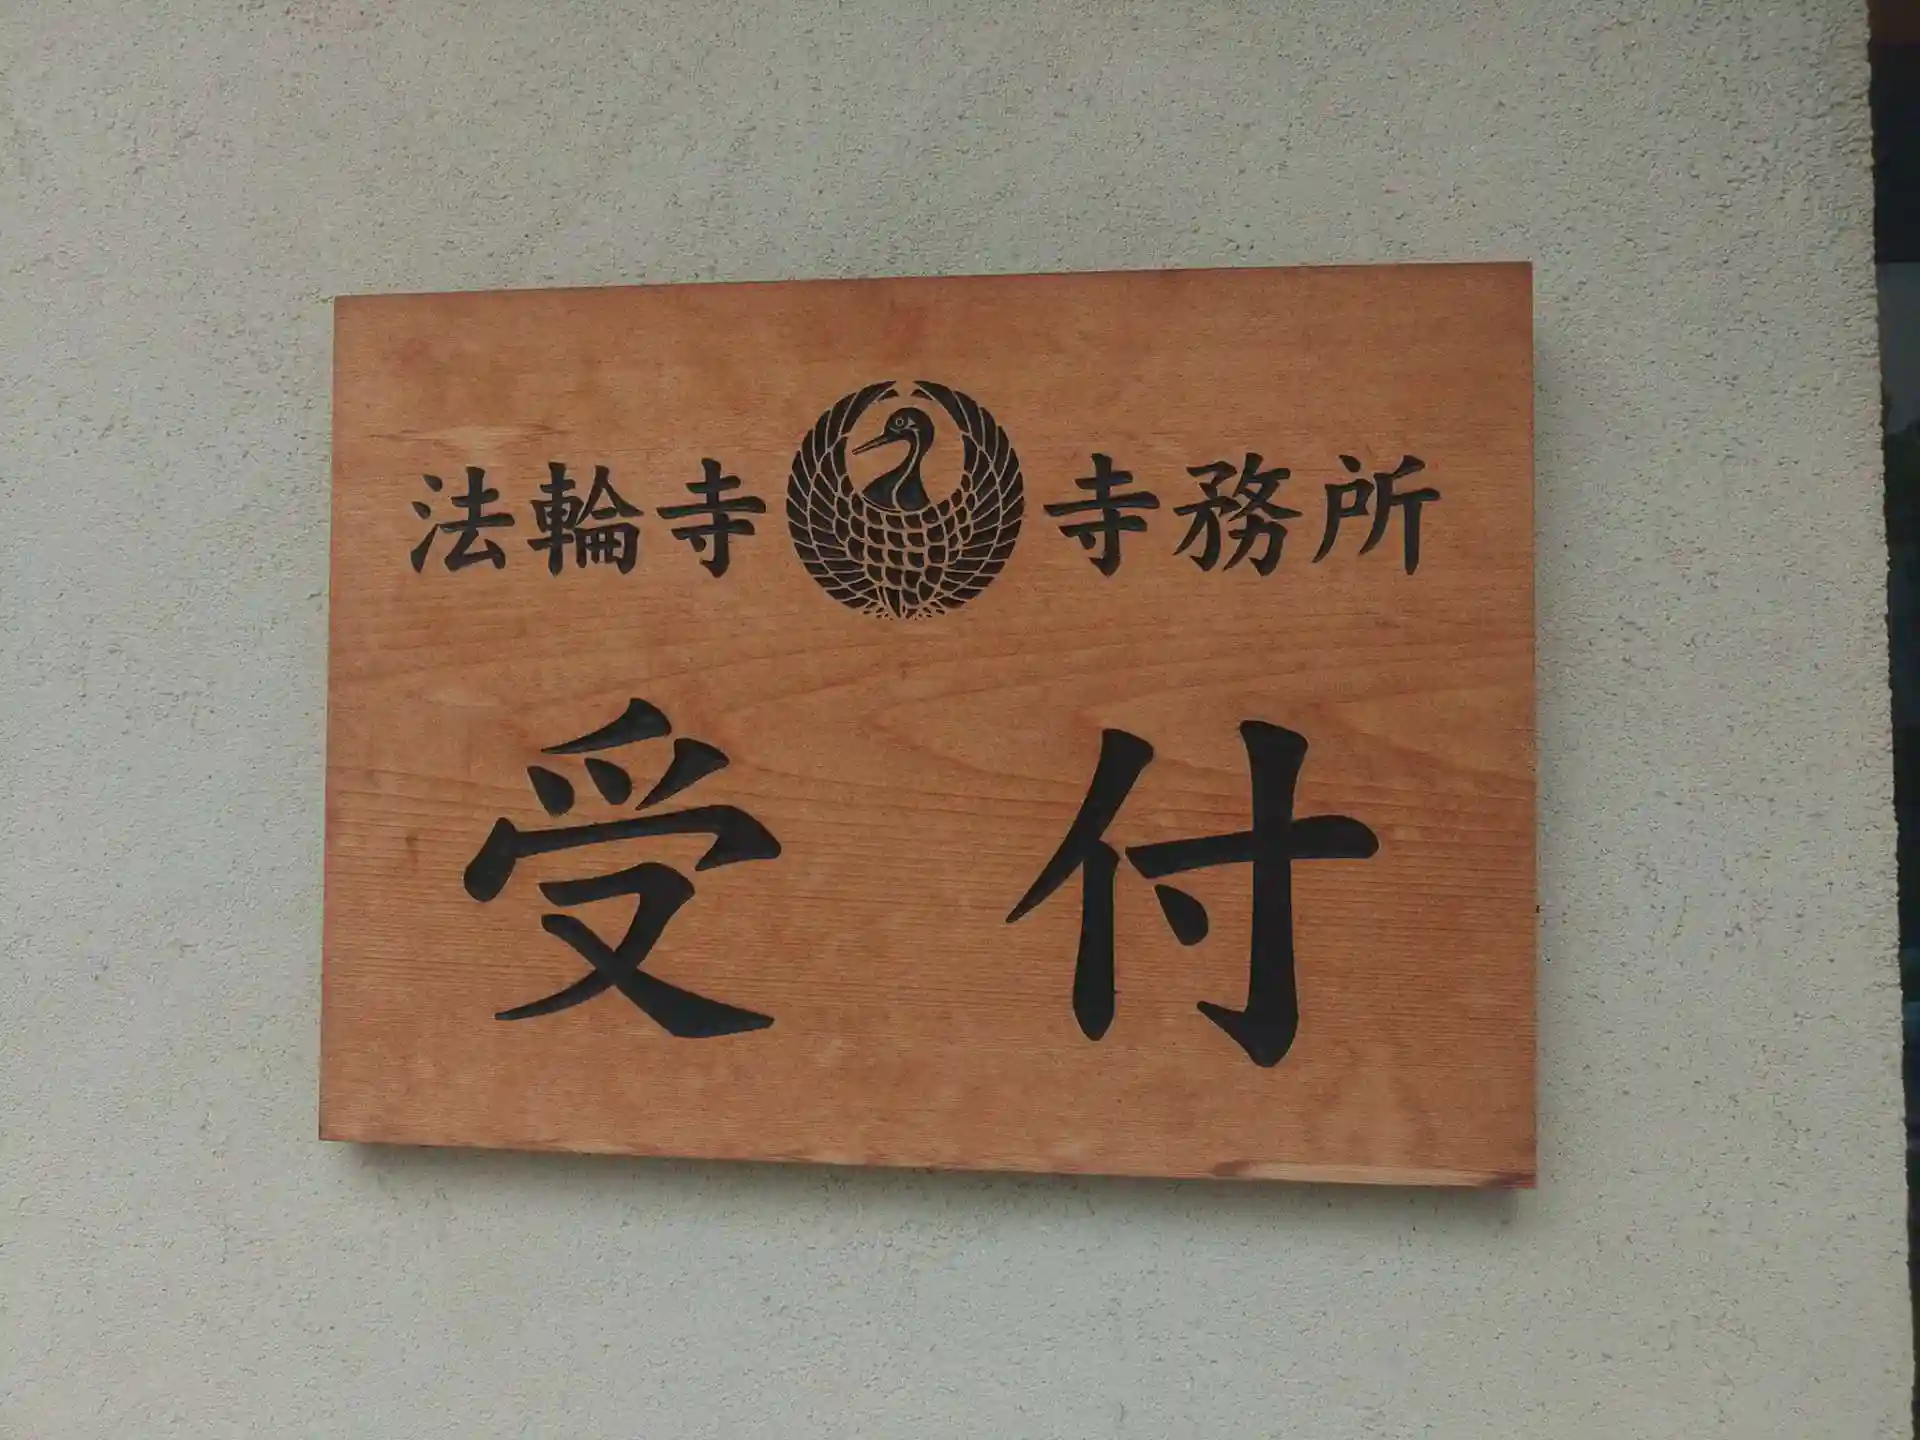 法輪寺 寺務所
受付